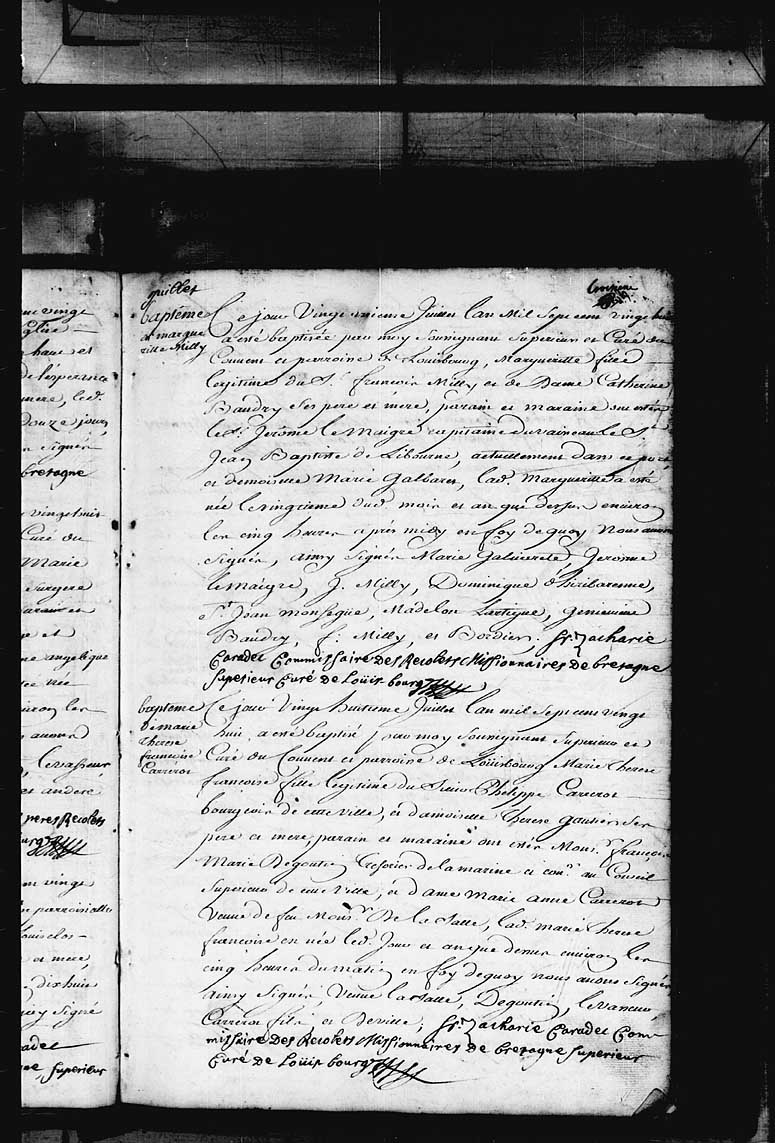 me vingt
Eglise
haut et
de l'esperance
mere, led.
Douze jours
signés
bretagne
vingt mil
Curé du
Marie
Surgere
parain et
et
angelique
née
environ les
avons
, levasseur
et andere
peres Recolets
bourg
vingt
parroisialle
Louis clos
et mere,
dix huit
signé
Caradec
, superieur
juillet
baptême
de margue
ritte Milly
Ce jour Vingtunieme Juillet Lan Mil Sept cent vingt huit
a esté baptisée par moy Soussignant Superieur et Curé du
Couvent et parroise de Louisbourg, Margueritte fille
legitime du Sr. francois Milly et de Dame Catherine
Baudry Ses pere et mere, parain et maraine ont estés
le Sr. Jerôme le Maigré capitaine du vaisseau le St
Jean Baptiste de Libourne, actuellement dans ce port
et demoiselle Marie Galbaret, lad. Margueritte a esté
née le vingtieme dud. mois et an que dessus environ
les cinq heures après midy en foy de quoy Nous avons
Signés, ainsy Signés Marie Galverete, Jerosme
Lemaigre, J. Milly, Dominique d'hiribarenne,
St. Jean Monsegüe, Madelon Lartigue, Genieveve
Baudry, f. Milly, et Bordier. fr. Zacharie
Caradec Commissaire Des Recolets Missionnaires De bretagne
Superieur Curé de Loüis bourg
baptême
De marie
therese
francoise
Carrerot
Ce jour Vingt huitieme Juillet Lan mil Sept cens vingt
huit, a eté baptisé par moy Soussignant Superieur et
Curé du Couvent et parroise de Louisbourg Marie therese
francoise fille legitime du Sieur Phelippe Carrerot
bourgeois de cette Ville, et damoiselle Therese Gautier Ses
pere et mere, parain et maraine ont estés Monsr. francois
Marie Degoutin tresorier de la marine et conr. au Conseil
Superieur de cette Ville, et dame Marie anne Carrerot
Veuve de feu Monsr. De la Salle, lad. marie therese
francoise en née led. Jour et an que dessus environ les
cinq heures du matin en foy de quoy nous avons Signés
ainsy Signés Veuve la Salle, Degoutin, levasseur
Carrerot fils et Deville, fr. Zacharie Caradec Com-
missaire Des Recolets Missionnaires de bretagne Superieur
Curé de Loüis bourg